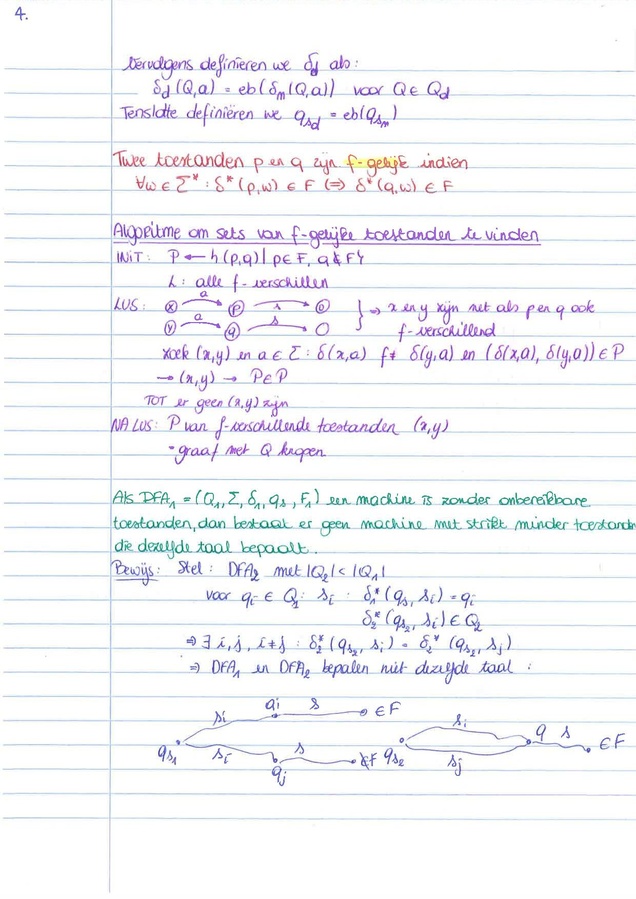 4.
Vervolgens definiëren we δd als:
δd(Q,a) = eb(δm(Q,a)) voor Q ∈ Qd
Tenslotte definiëren we qsd = eb(qsm)
Twee toestanden p en q zijn f-gelijk indien
∀w ∈ Σ* : δ*(p,w) ∈ F ⇔ δ*(q,w) ∈ F
Algoritme om sets van f-gelijke toestanden te vinden
INIT: P ← {(p,q) | p∈F, q∉F}
↳: alle f-verschillen
LUS: x a p s o } ⇒ x en y zijn net als p en q ook
y a q s f-verschillend
zoek (x,y) en a ∈ Σ : δ(x,a) f≠ δ(y,a) en (δ(x,a), δ(y,a)) ∈ P
→ (x,y) → P∈P
TOT er geen (x,y) zijn
NA LUS: P van f-verschillende toestanden (x,y)
- graaf met Q knopen
Als DFA1 = (Q1, Σ, δ1, qs, F1) een machine is zonder onbereikbare
toestanden, dan bestaat er geen machine met strikt minder toestanden
die dezelfde taal bepaalt.
Bewijs: Stel: DFA2 met |Q2| < |Q1|
voor qi ∈ Q1: si : δ1*(qs, si) = qi
δ2*(qs2, si) ∈ Q2
⇒ ∃ i,j, i≠j : δ2*(qs2, si) = δ2*(qs2, sj)
⇒ DFA1 en DFA2 bepalen niet dezelfde taal :
si qi s ∈F si q s ∈F
qs1 si qj s ∉F qs2 sj